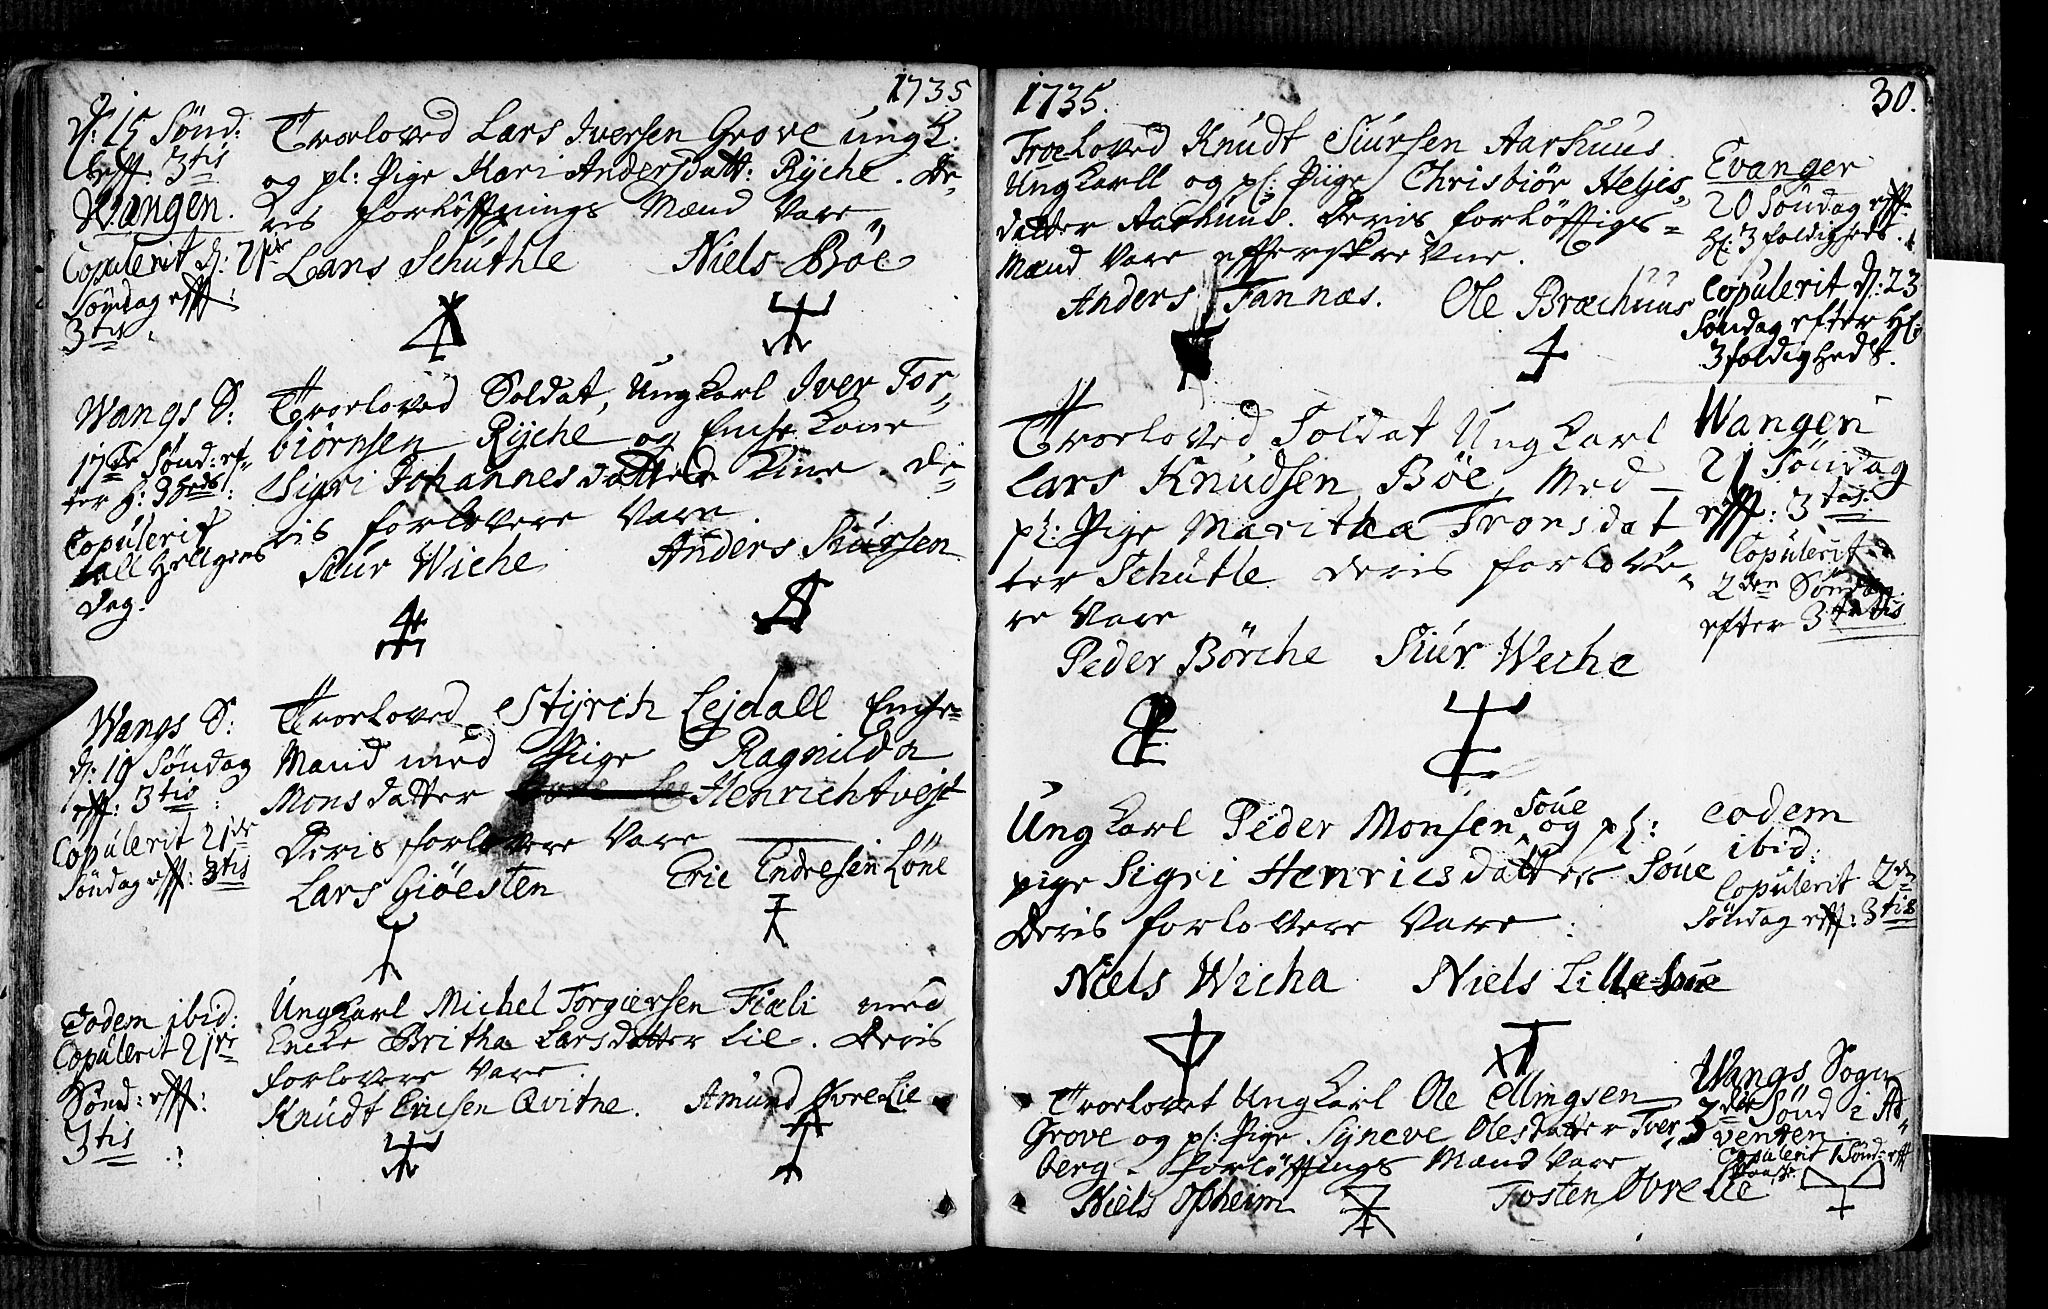 1735
D: 15 Sønd:
Eff: 3tis
Wangen.
Copulerit D: 21de
Søndag eff:
3tis.
Troeloved Lars Iversen Grove ungk:
og pl: Pige Mari Andersdatt: Rÿche. De„
ris forløffnings Mænd vare„
Lars Schuthle Niels Böe
Wangs S:
17de Sønd: ef„
ter H: 3heds:
Copulerit
all Helgens
Dag.
Troeloved Soldat, Ungkarl Iver Tor„
biörnsen Rÿche og Encke Kone
Sigri Johannesdatter Kine. De„
ris forlovere vare.
Siur Wiche Anders Siursen
Wangs S:
D: 19 Søndag
eff: 3tis:
Copulerit 21de
Søndag eff: 3tis
Troeloved Stÿrch Lejdall Encke„
Mand med Pige Ragnilda
Monsdatter Henrichtvejt
Deris forlovere vare
Lars Giöesten Eric Endresen Löne
Eodem ibid:
Copulerit 21de
Sønd: eff:
3tis.:
Ungkarl Michel Torgiersen Fiæli med
Encke Britha Larsdatter Lie. Deris
forlovere vare.
Knudt Ericsen Qvitne. Amund Øvre Lie
1735. 30.
Troeloved Knudt Siursen Aarhuus
Ungkarll og pl: Piige Christiör Heljes„
datter Aarhuus. Deris forløffigs=
Mænd vare efferskrevne.
Anders Fannæs. Ole Bræchuus
Evanger
20 Søndag eff:
Hl: 3foldigheds.
Copulerit D: 23
Søndag efter Hl:
3foldigheds.
Troeloved Soldat Ungkarl
Lars Knudsen Böe, Med
pl: Pige Maritha Tronsdat
ter Schutle deris forlove„
re vare
Peder Börche Siur Weche
Wangen
21 Søndag
eff: 3tis:
Copulerit
2den Søndag
efter 3tatis
Ungkarl Peder Monsen Soue og pl:
pige Sigri Henricsdatter Soue
Deris forlovere vare:
Niels Wicha Niels Lille Soue
eodem
ibid:
Copulerit 2den
Søndag eff: 3tis
Troelovet Ungkarl Ole Elingsen
Grove og pl: Pige Sÿneve Olesdatter Tver„
berg. Forløffnings Mænd vare
Niels Opheim Tosten Øvre Lie
Wangs Sogn
3die Sønd i Ad„
venten.
Copulerit 1 Sønd: eff
Paaske.